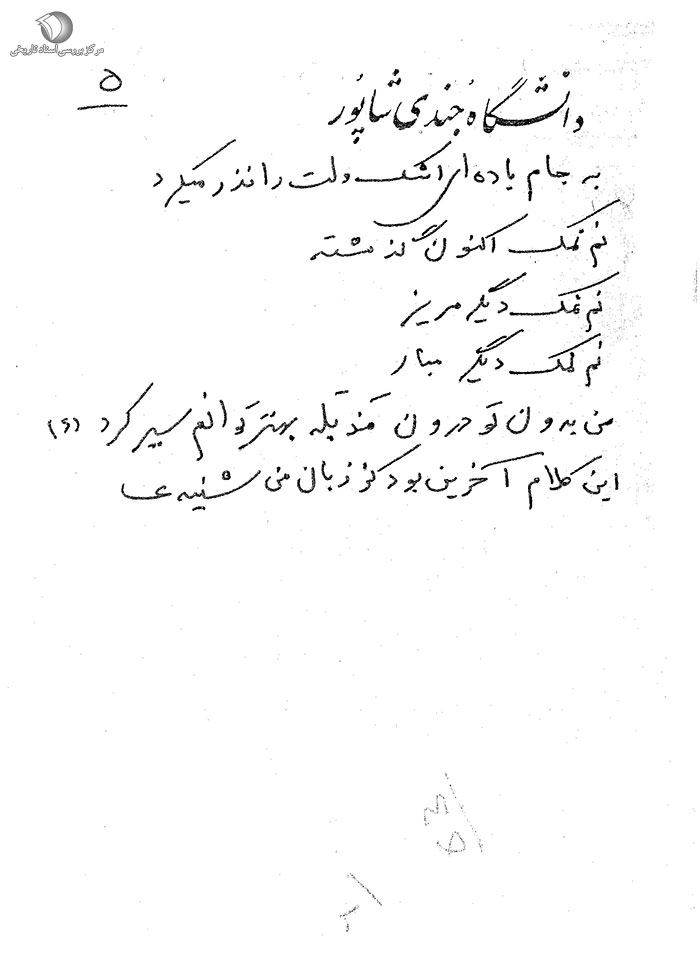 مرکز بررسی اسناد تاریخی
۵
دانشگاه جندی شاپور
به جام باده‌ای اشک ولت را نذر میکرد
نم نمک اکنون گذشته
نم نمک دیگر مریز
نم نمک دیگر مبار
من بدون تو درون بهتر توانم سیر کرد (۶)
این کلام آخرین بود کز زبان من شنید